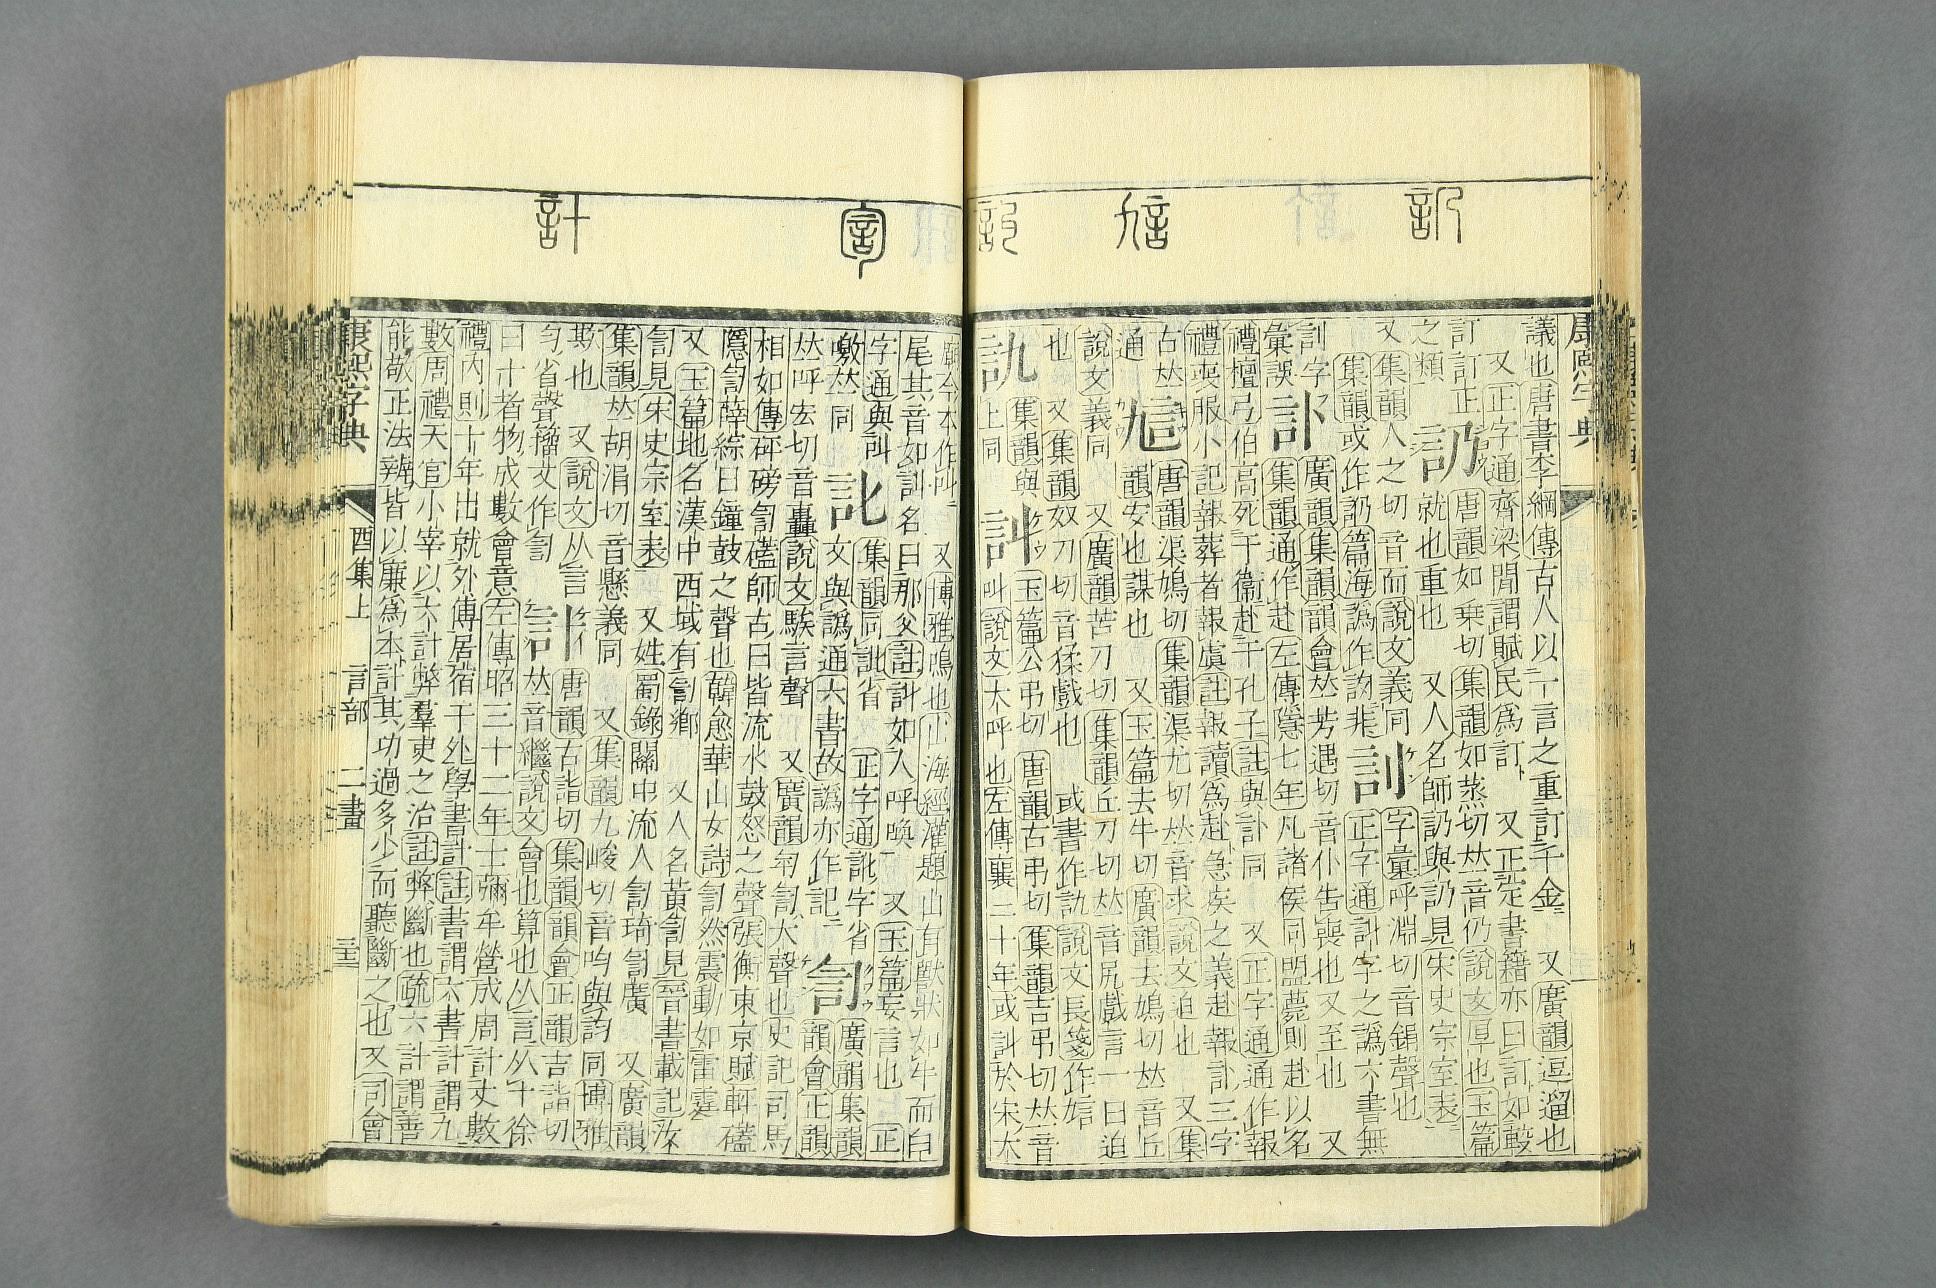 康熙字典
議也唐書李綱傳古人以一言之重訂千金 又廣韻逗遛也
又正字通齊梁閒謂賦民爲訂 又正定書籍亦曰訂如
訂訂正訒唐韻如乗切集韻如蒸切𠀤音仍說文厚也玉篇
之類 就也重也 又人名師訒與訒見宋史宗室表
又集韻人之切音而說文義同 字彙呼淵切音鋗聲也
集韻或作訒篇海譌作訽非 正字通訃字之譌六書無
訓字訃廣韻集韻韻會𠀤芳遇切音仆告喪也又至也 又
彙誤 集韻通作赴左傳隱七年凡諸侯同盟薨則赴以名
禮檀弓伯高死于衞赴于孔子註與訃同 又正字通通作報
禮喪服小記報葬者報虞註報讀爲赴急疾之義赴報訃三字
古𠀤 唐韻渠鳩切集韻渠尤切𠀤音求說文迫也 又集
通 訄韻安也謀也 又玉篇去牛切廣韻去鳩切𠀤音丘
說文義同 又廣韻苦刀切集韻丘刀切𠀤音尻戲言一曰迫
也 又集韻奴刀切音猱戲也 或書作訅說文長箋作𧥷
訅集韻與 訆玉篇公弔切 唐韻古弔切集韻吉弔切𠀤音
上同 叫說文大呼也左傳襄三十年或訆於宋太
廟今本作叫 又博雅鳴也山海經灌題山有獸狀如牛而白
尾其音如訓名曰那父註訆如人呼喚 又玉篇妄言也 正
字通與叫 訿集韻同訿省 正字通訿字省 訇廣韻集韻
噭𠀤同 文與譌通六書故譌亦作訛 韻會正韻
𠀤呼宏切音轟說文駭言聲 又廣韻匉訇大聲也史記司馬
相如傳砰磅訇礚師古曰皆流水鼓怒之聲張衡東京賦軯礚
隱訇薛綜曰鐘鼓之聲也韓愈華山女詩訇然震動如雷霆
又玉篇地名漢中西域有訇鄉 又人名黃訇見晉書載記汝
訇見宋史宗室表 又姓蜀錄關中流人訇琦訇廣 又廣韻
集韻𠀤胡涓切音懸義同 又集韻九峻切音呁與訽同博雅
欺也 又說文从言 計唐韻古詣切集韻韻會正韻吉詣切
勻省聲籀文作訇 𠀤音繼說文會也算也从言从十徐
曰十者物成數會意左傳昭三十二年士彌牟營成周計丈數
禮內則十年出就外傅居宿于外學書計註書謂六書計謂九
數周禮天官小宰以六計弊羣吏之治註弊斷也疏六計謂善
能敬正法辨皆以廉爲本計其功過多少而聽斷之也又司會
康熙字典 酉集上 言部 二畫